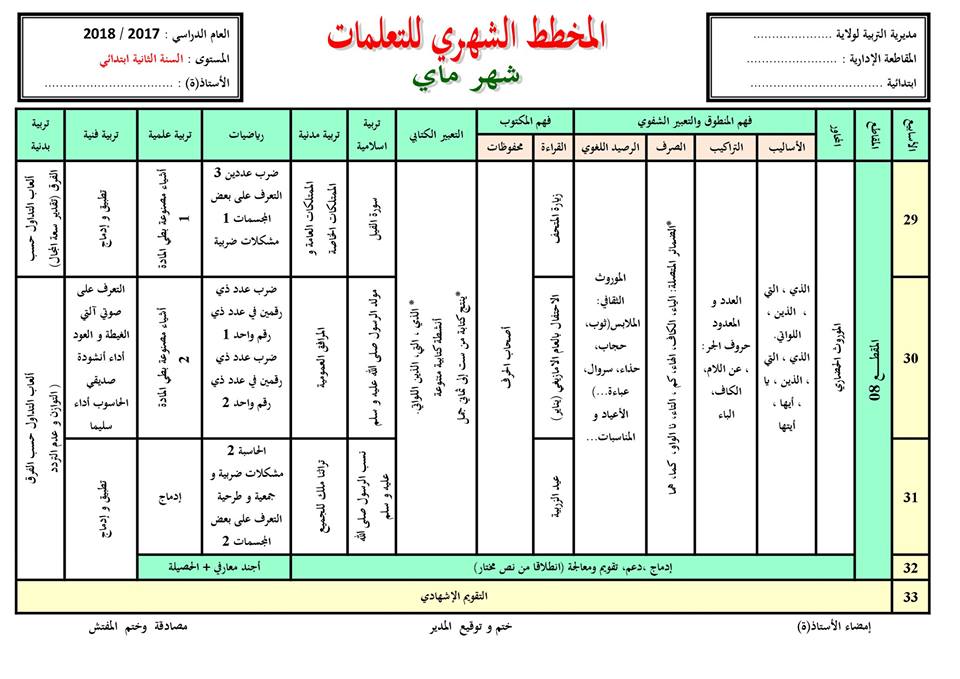 مديرية التربية لولاية .....................
المقاطعة الإدارية : .....................
ابتدائية ....................................
المخطط الشهري للتعلمات
شهر ماي
العام الدراسي : 2017 / 2018
المستوى : السنة الثانية ابتدائي
الأستاذ(ة) : ..............................
الأسابيع
المقاطع
المحاور
فهم المنطوق والتعبير الشفوي
الأساليب
التراكيب
الصرف
الرصيد اللغوي
فهم المكتوب
القراءة
محفوظات
التعبير الكتابي
تربية
اسلامية
تربية مدنية
رياضيات
تربية علمية
تربية فنية
تربية
بدنية
29
30
31
32
33
المقطــع 08
الموروث الحضاري
الذي ، التي
، الذين ،
اللواتي.
الذي ، التي
، الذين ، يا
، أيها ،
أيتها
العدد و
المعدود
حروف الجر:
، عن اللام،
الكاف،
الباء
*الضمائر المتصلة: الياء، الكاف، الهاء، كم ، التاء، نا الواو، كما، هما
الموروث
الثقافي:
الملابس(ثوب،
حجاب،
حذاء، سروال،
عباءة...)
الأعياد و
المناسبات...
زيارة المتحف
الاحتفال بالعام الامازيغي (يناير)
عيد الزربية
أصحاب الحرف
*ينتج كتابة من ست إلى ثماني جمل
أنشطة كتابية متنوعة
*الذي ، التي، الذين اللواتي.
سورة الفيل
مولد الرسول صلى الله عليه و سلم
نسب الرسول صلى الله
عليه و سلم
الممتلكات العامة و
الممتلكات الخاصة
المرافق العمومية
تراثنا ملك للجميع
ضرب عددين 3
التعرف على بعض
المجسمات 1
مشكلات ضربية
ضرب عدد ذي
رقمين في عدد ذي
رقم واحد 1
ضرب عدد ذي
رقمين في عدد ذي
رقم واحد 2
الحاسبة 2
مشكلات ضربية و
جمعية و طرحية
التعرف على بعض
المجسمات 2
أشياء مصنوعة بطي المادة
1
أشياء مصنوعة بطي المادة
2
إدماج
تطبيق و إدماج
التعرف على
صوتي آلتي
الغيطة و العود
أداء أنشودة
صديقي
الحاسوب أداء
سليما
تطبيق و إدماج
ألعاب التداول حسب
الفرق (تقدير سعة المجال)
ألعاب التداول حسب الفرق
( التوازن و عدم التردد
إدماج ،دعم، تقويم ومعالجة (انطلاقا من نص مختار)
أجند معارفي + الحصيلة
التقويم الإشهادي
إمضاء الأستاذ(ة)
ختم و توقيع المدير
مصادقة وختم المفتش